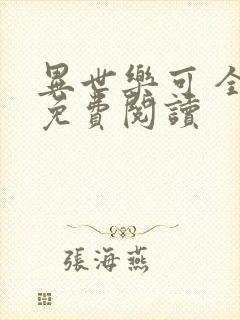 異世樂可全
免費閱讀
張海燕